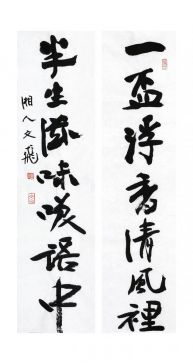 一盃浮香清風裡
半生滋味咲语中
湘人文飛